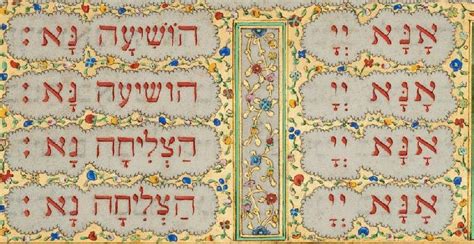 אָנָּא יְיָ הוֹשִׁיעָה נָּא :
אָנָּא יְיָ הוֹשִׁיעָה נָּא :
אָנָּא יְיָ הַצְלִיחָה נָּא :
אָנָּא יְיָ הַצְלִיחָה נָּא :